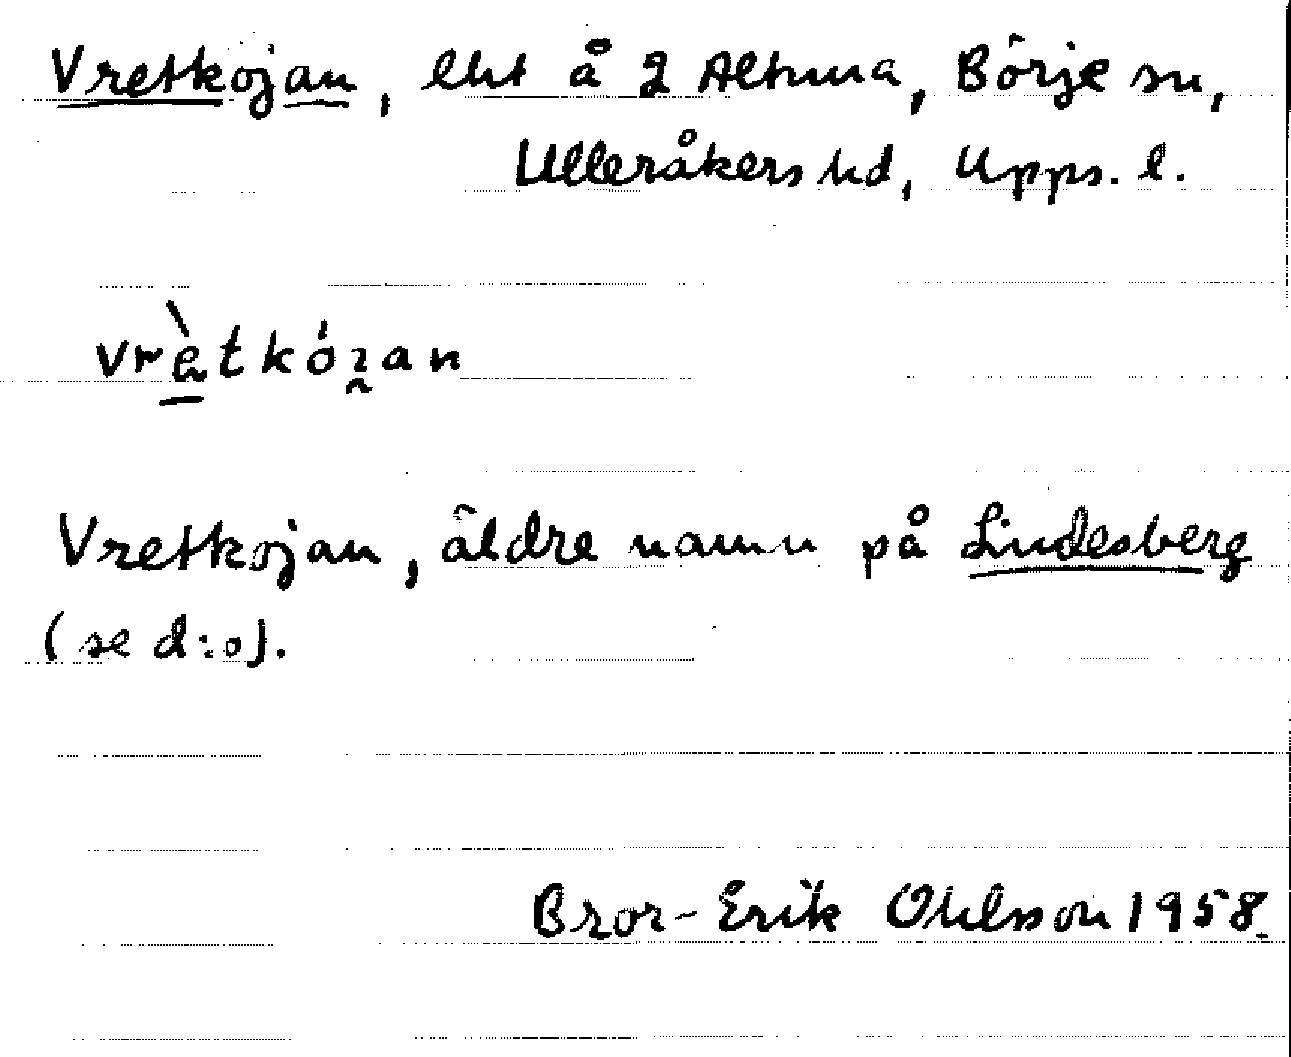 Vretkojan, lht å 2 Altuna, Börje sn,
Ulleråkers hd, Upps. l.
Vretkojan, äldre namn på Lindesberg
(se d:o).
Bror-Erik Ohlsson 1958.